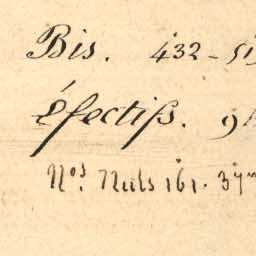 Bis. 432-51
éfectifs. 9
Nos. Nuls 161. 3